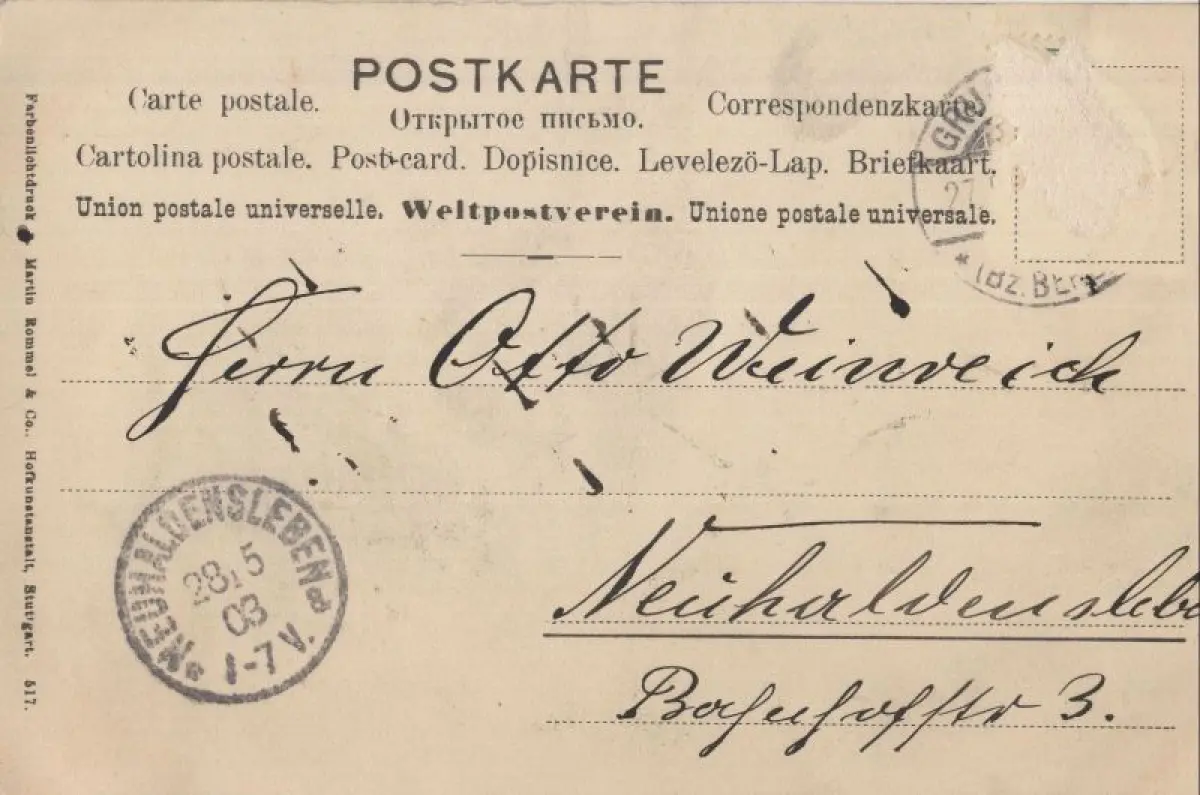 POSTKARTE
Carte postale.
Открытое письмо.
Correspondenzkarte.
Cartolina postale. Post-card. Dopisnice. Levelező-Lap. Briefkaart.
Union postale universelle. Weltpostverein. Unione postale universale.
27
(Bz. BER
Herrn Otto Weinreich
NEUHALDENSLEBEN
28.5
03
1-7 V.
Neuhaldensleben
Bahnhofstr 3.
Farbenlichtdruck Martin Rommel & Co., Hofkunstanstalt, Stuttgart. 517.